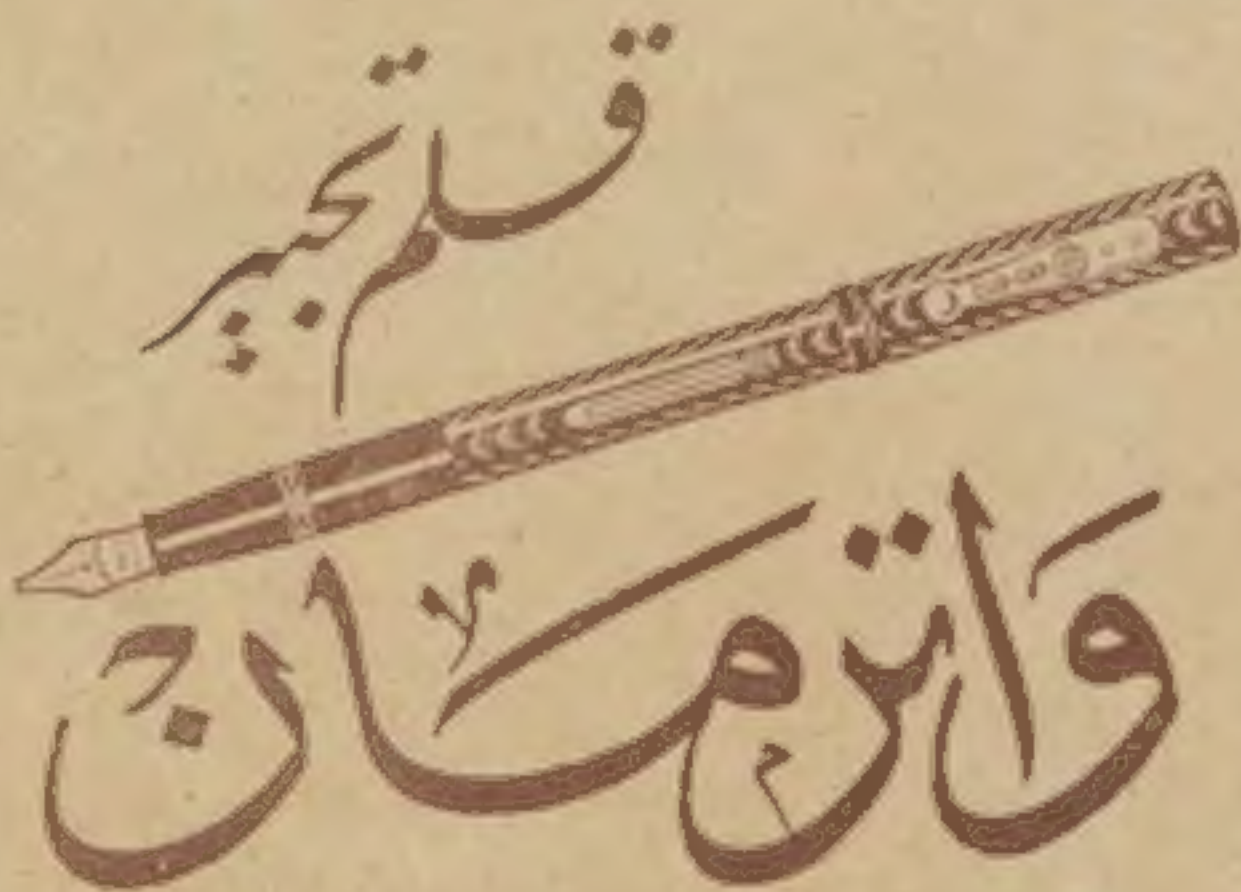 قلم تحبير
وَاترمان